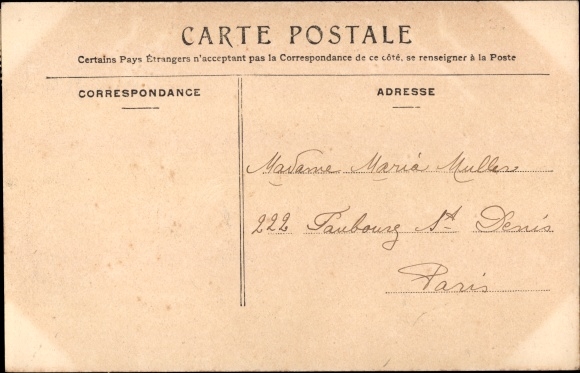 CARTE POSTALE
Certains Pays Étrangers n'acceptant pas la Correspondance de ce côté, se renseigner à la Poste
CORRESPONDANCE
ADRESSE
Madame Maria Muller
222 Faubourg St Denis
Paris